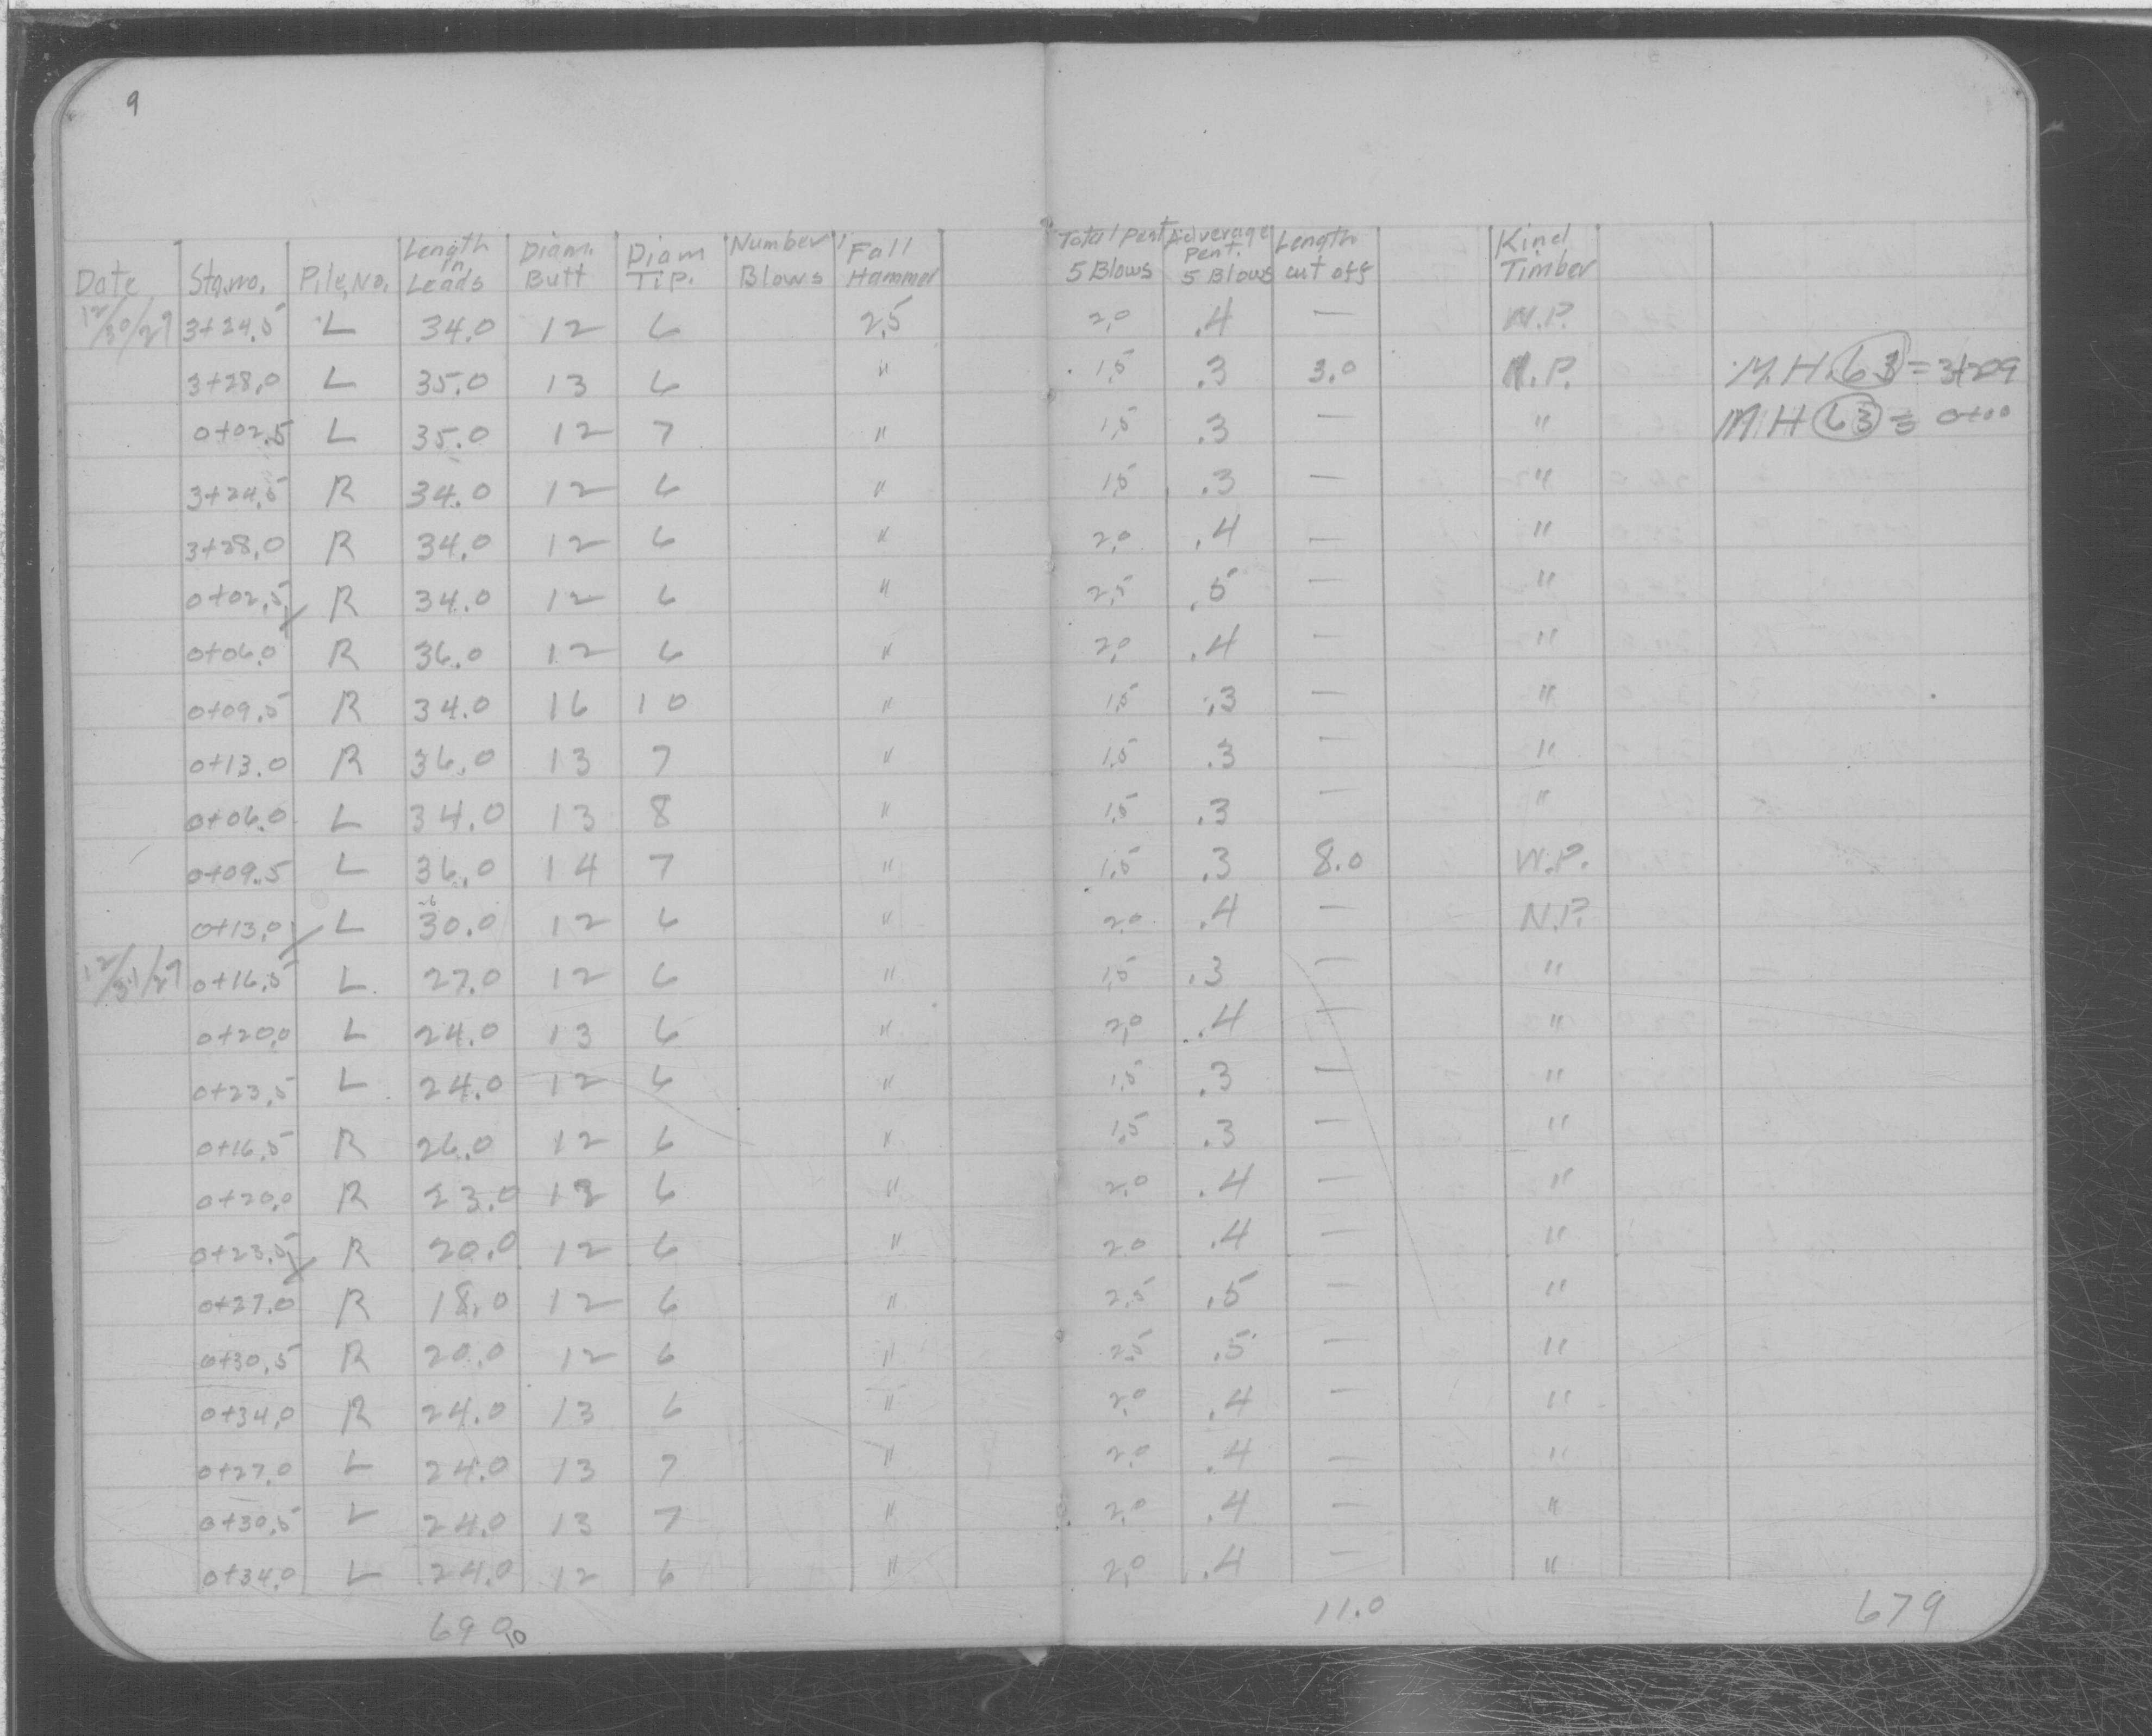 9
Date Sta.no. Pile,No. Length in Leads Diam. Butt Diam Tip. Number Blows Fall Hammer Total Pent 5 Blows Adverage Pent. 5 Blows Length cut off Kind Timber
12/30/29 3+24.5 L 34.0 12 6 2.5 2.0 .4 — N.P.
3+28.0 L 35.0 13 6 " 1.5 .3 3.0 N.P. M.H. 63 = 3+29
0+02.5 L 35.0 12 7 " 1.5 .3 — " M.H 63 = 0+00
3+24.5 R 34.0 12 6 " 1.5 .3 — "
3+28.0 R 34.0 12 6 " 2.0 .4 — "
0+02.5 R 34.0 12 6 " 2.5 .5 — "
0+06.0 R 36.0 12 6 " 2.0 .4 — "
0+09.5 R 34.0 16 10 " 1.5 .3 — "
0+13.0 R 36.0 13 7 " 1.5 .3 — "
0+06.0 L 34.0 13 8 " 1.5 .3 — "
0+09.5 L 36.0 14 7 " 1.5 .3 8.0 W.P.
0+13.0 L 30.0 12 6 " 2.0 .4 — N.P.
12/31/29 0+16.5 L 27.0 12 6 " 1.5 .3 — "
0+20.0 L 24.0 13 6 " 2.0 .4 — "
0+23.5 L 24.0 12 6 " 1.5 .3 — "
0+16.5 R 26.0 12 6 " 1.5 .3 — "
0+20.0 R 23.0 12 6 " 2.0 .4 — "
0+23.5 R 20.0 12 6 " 2.0 .4 — "
0+27.0 R 18.0 12 6 " 2.5 .5 — "
0+30.5 R 20.0 12 6 " 2.5 .5 — "
0+34.0 R 24.0 13 6 " 2.0 .4 — "
0+27.0 L 24.0 13 7 " 2.0 .4 — "
0+30.5 L 24.0 13 7 " 2.0 .4 — "
0+34.0 L 24.0 12 6 " 2.0 .4 — "
690 11.0 679